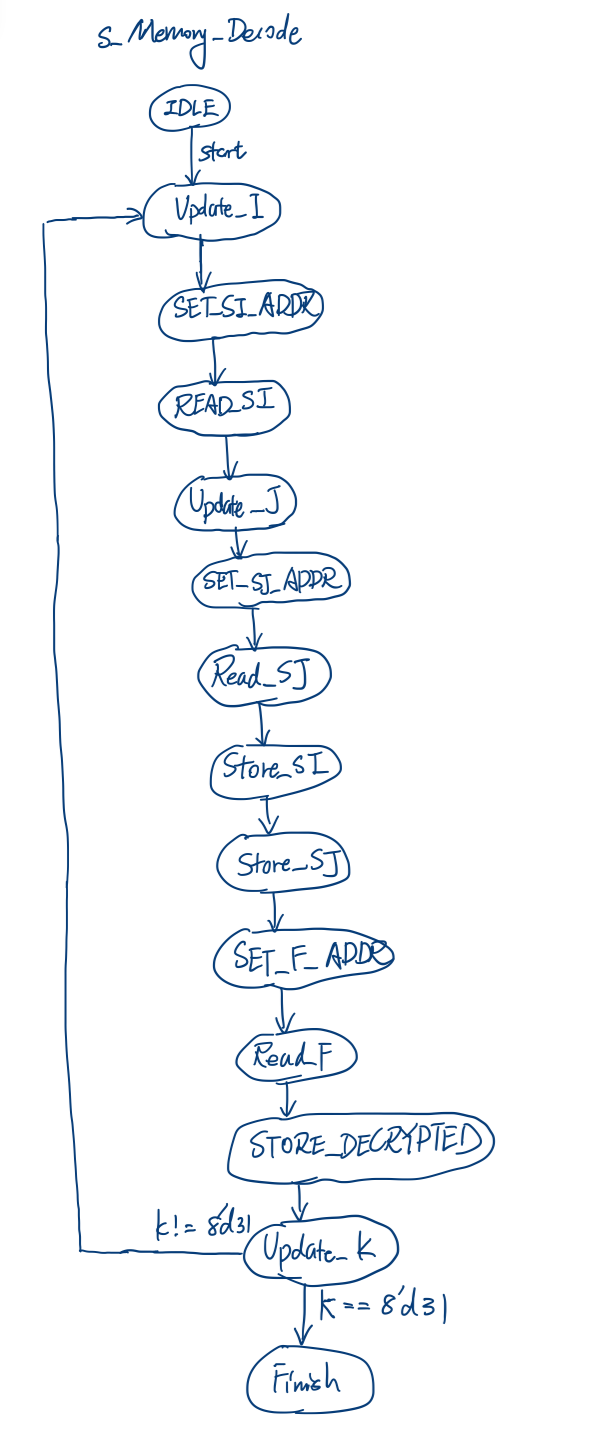 S_Memory_Decode
IDLE
start
Update_I
SET_SI_ADDR
READ_SI
Update_J
SET_SJ_ADDR
Read_SJ
Store_SI
Store_SJ
SET_F_ADDR
Read_F
STORE_DECRYPTED
k != 8'd31
Update_K
k == 8'd31
Finish